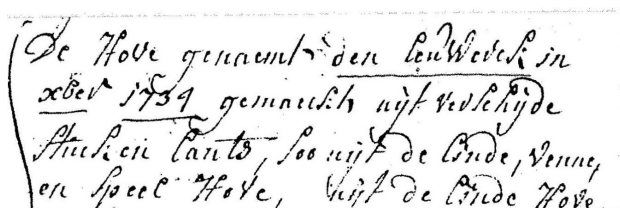 De Hove genaemt den leuWerck in
xber 1734 gemaeckt uijt verschijde
stucken lants, soo uijt de linde, venne,
en speel Hove, uijt de linde Hove